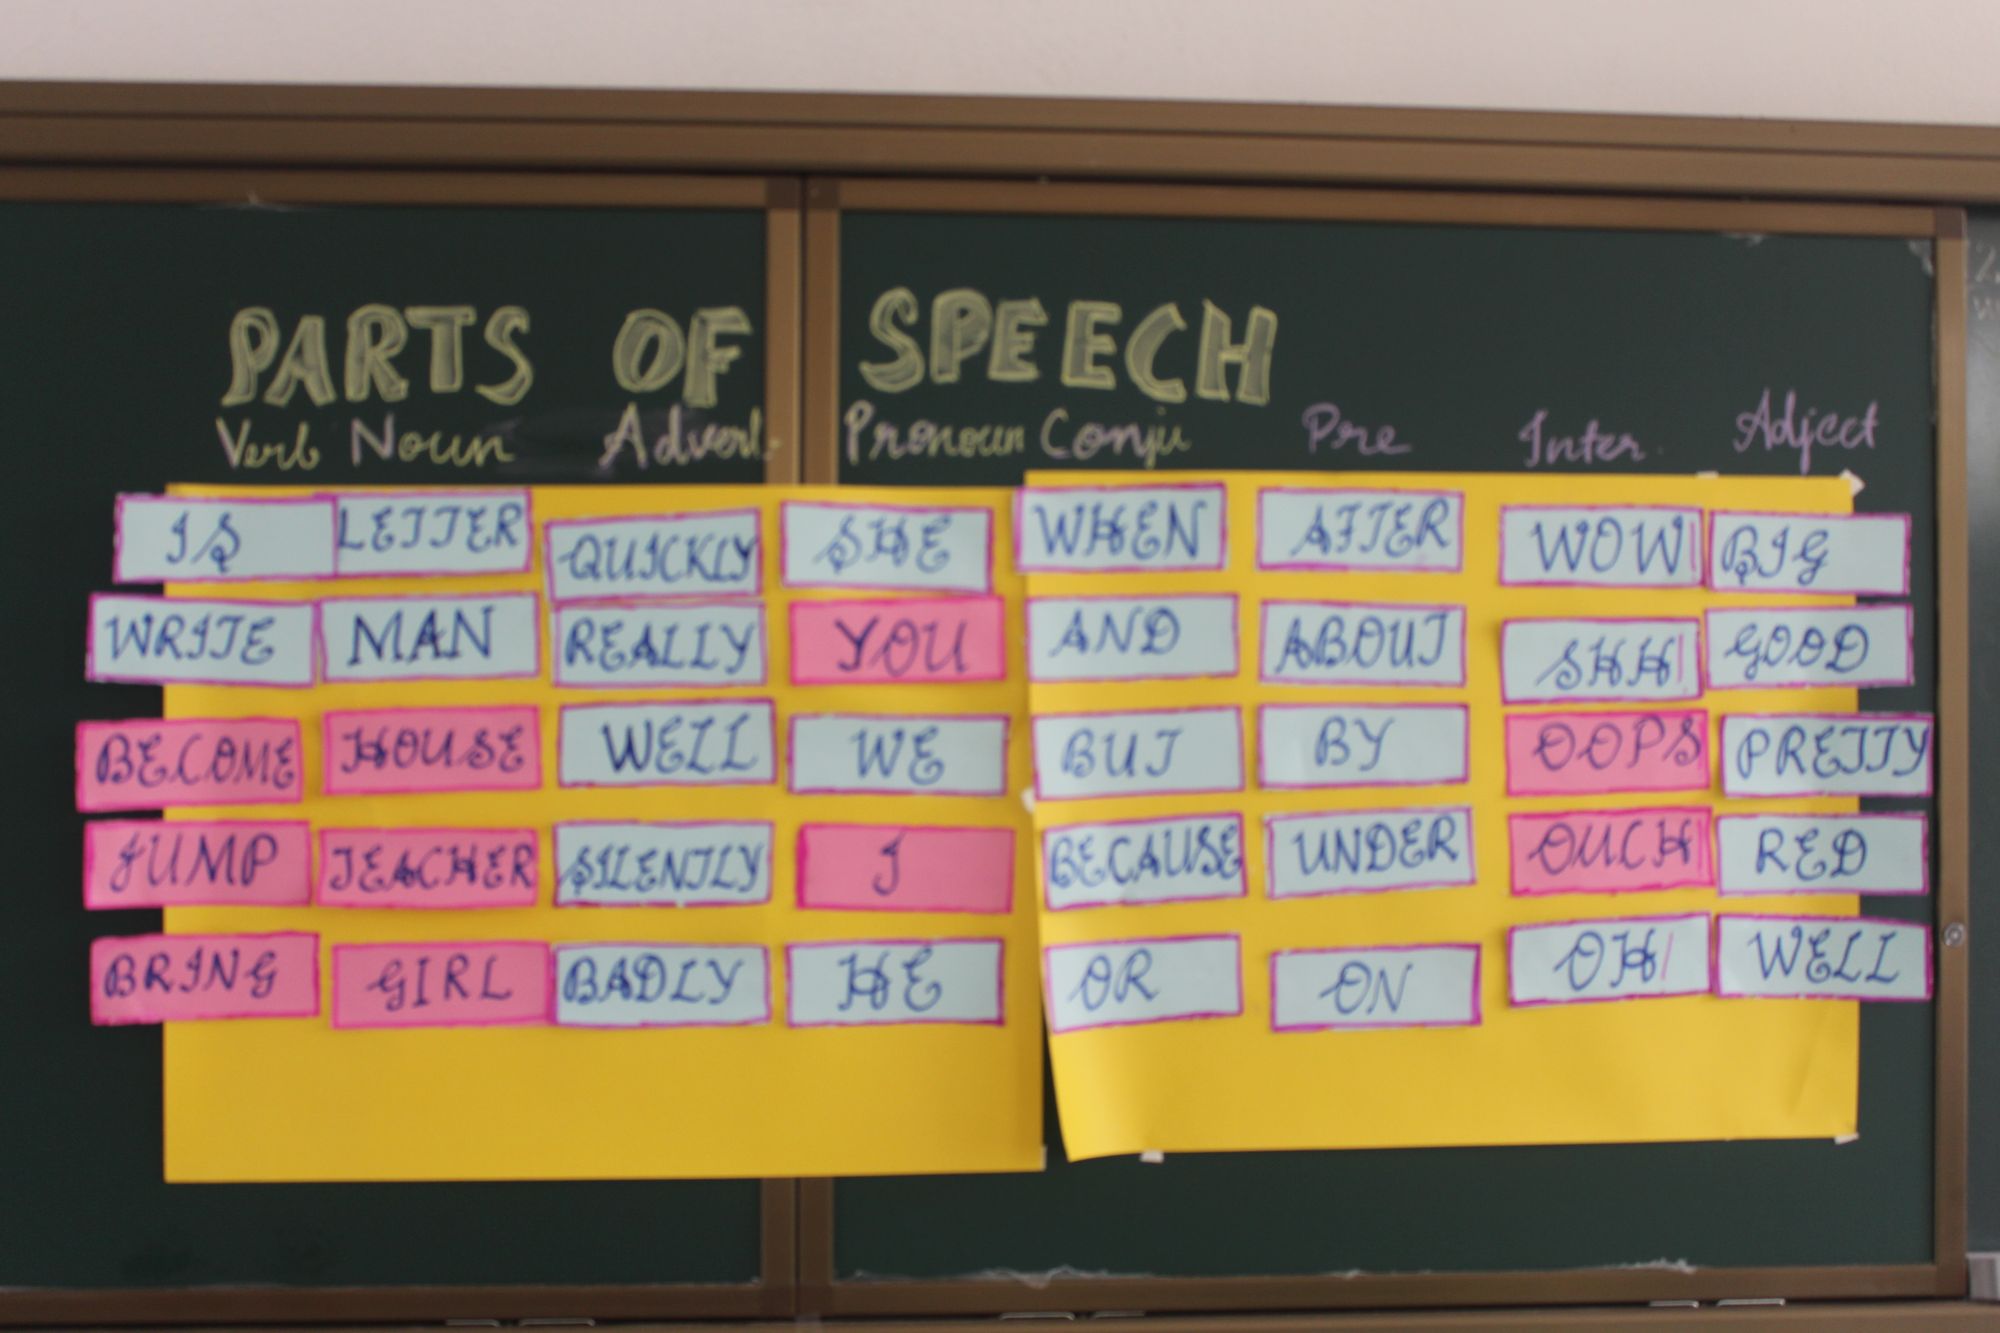 PARTS OF SPEECH
Verb Noun Adverb Pronoun Conju Pre Inter. Adject
IS LETTER QUICKLY SHE WHEN AFTER WOW! BIG
WRITE MAN REALLY YOU AND ABOUT SHH! GOOD
BECOME HOUSE WELL WE BUT BY OOPS PRETTY
JUMP TEACHER SILENTLY I BECAUSE UNDER OUCH! RED
BRING GIRL BADLY HE OR ON OH! WELL